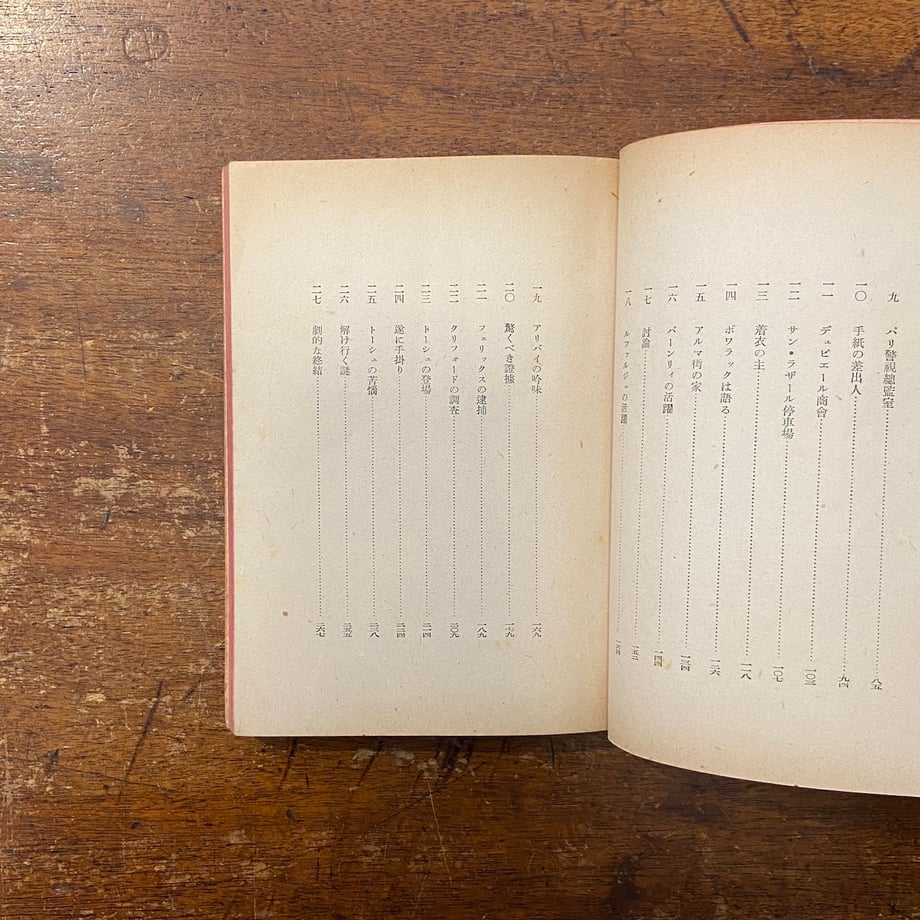 九 パリ警視總監室 八五
一〇 手紙の差出人 九四
一一 デュピエール商會 一〇三
一二 サン・ラザール停車場 一〇七
一三 着衣の主 一一八
一四 ボワラックは語る 一二六
一五 アルマ街の家 一三四
一六 バーンリィの活躍 一四四
一七 討論 一五二
一八 ルファルジュの活躍
一九 アリバイの吟味 一六九
二〇 驚くべき證據 一七九
二一 フェリックスの逮捕 一八九
二二 クリフォードの調査 二〇九
二三 トーシュの登場 二一四
二四 遂に手掛り 二二四
二五 トーシュの苦惱 二三八
二六 解け行く謎 二五五
二七 劇的な終結 二六七